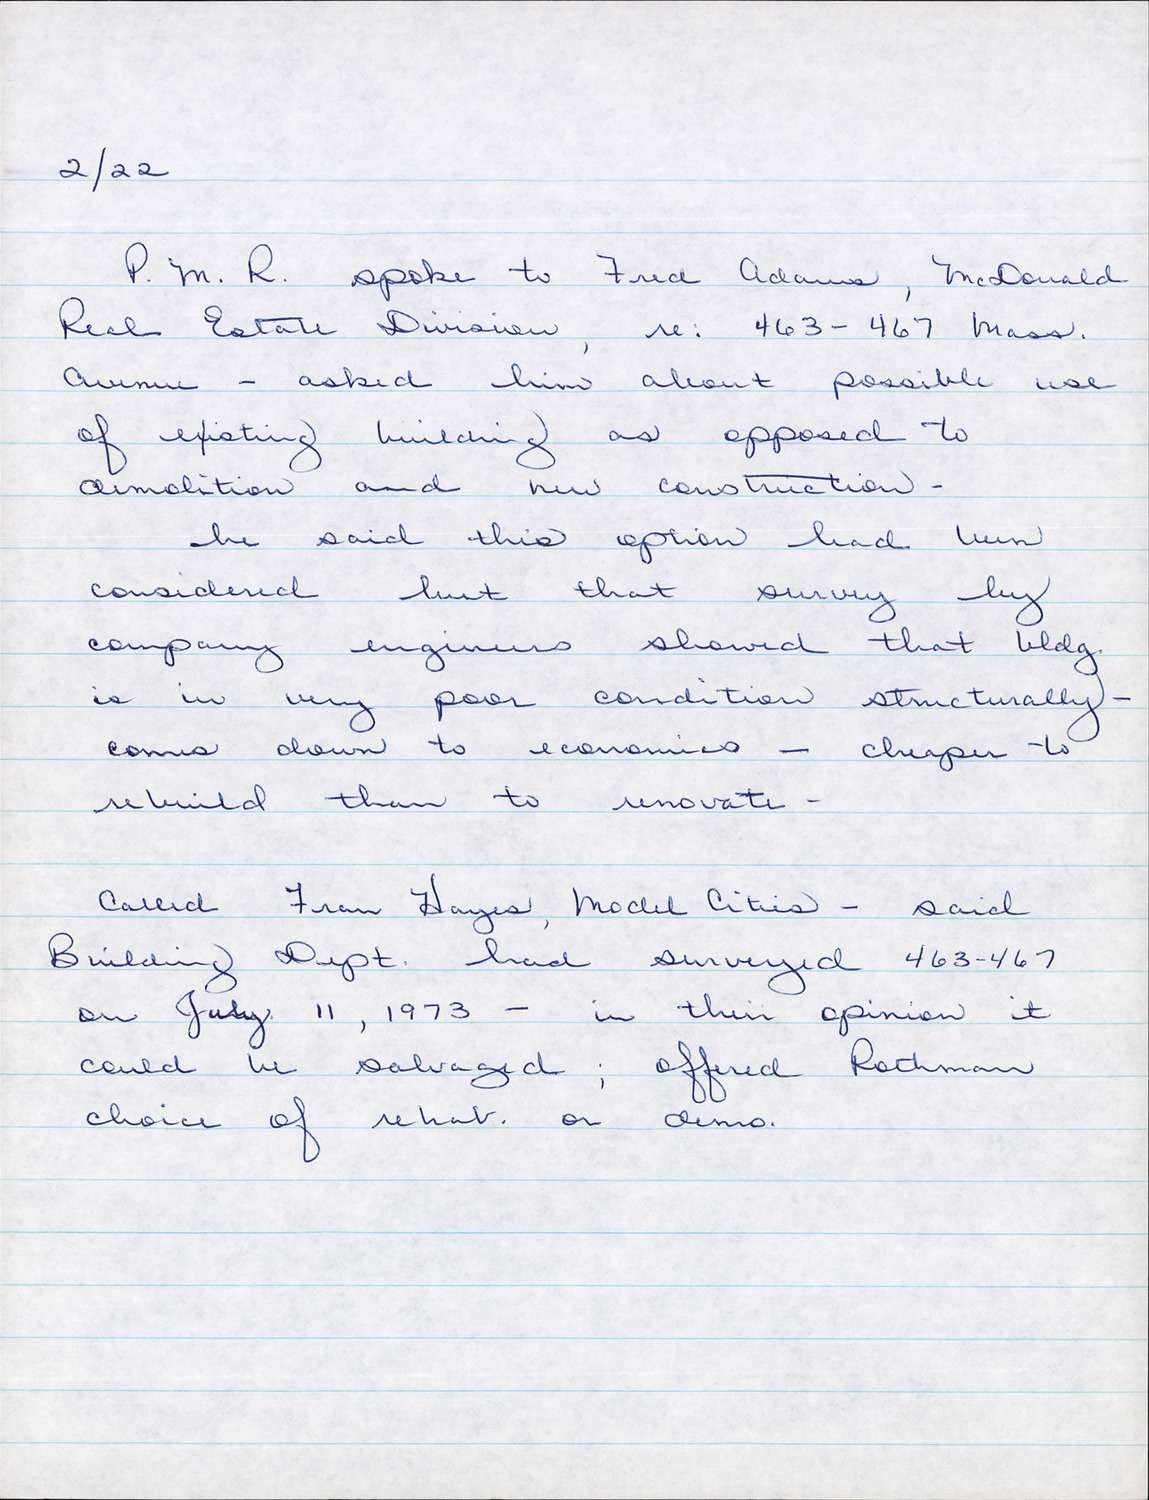 2/22
P. M. R. spoke to Fred Adams, McDonald
Real Estate Division, re: 463-467 Mass.
Avenue - asked him about possible use
of existing building as opposed to
demolition and new construction -
he said this option had been
considered but that survey by
company engineers showed that bldg.
is in very poor condition structurally -
comes down to economics - cheaper to
rebuild than to renovate -
Called Fran Hayes, Model Cities - said
Building Dept. had surveyed 463-467
on July 11, 1973 - in their opinion it
could be salvaged; offered Rothman
choice of rehab. or demo.